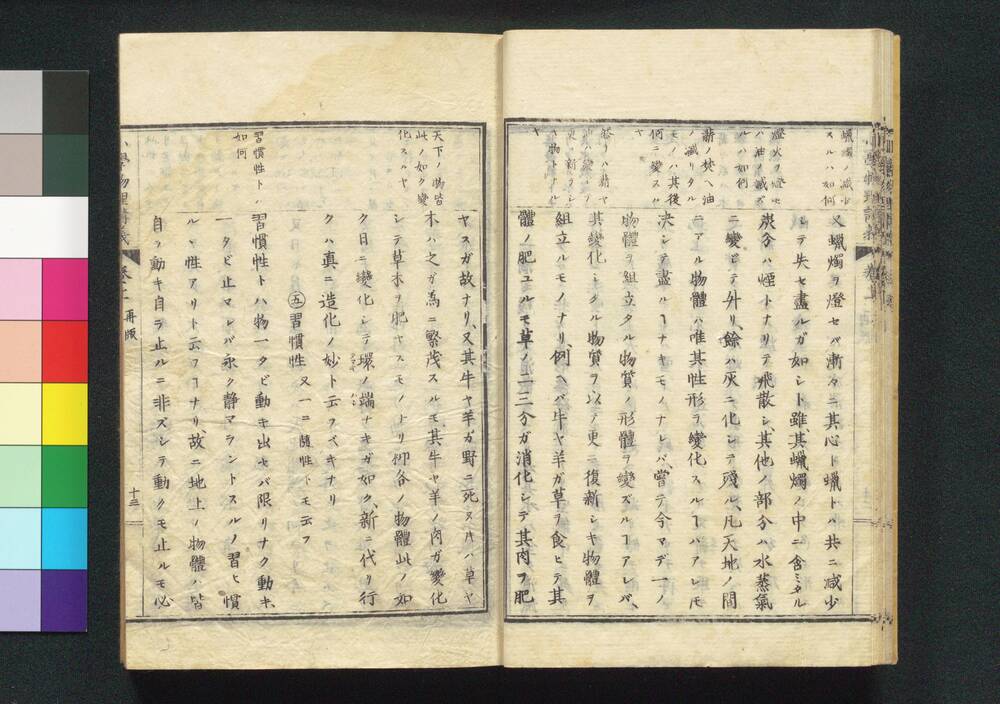 蠟燭ノ減少
スルハ如何
燈火ヲ燈セ
バ油ノ減ズ
ルハ如何
薪ノ焚ヘ油
ノ減リタル
モノハ其後
何ニ變スル
ヤ
又蠟燭ヲ燈セバ漸々ニ其心ト蠟トハ共ニ減少
シテ失セ盡ルガ如シト雖、其蠟燭ノ中ニ含ミタル
炭分ハ煙トナリテ飛散シ、其他ノ部分ハ水蒸氣
ニ變ジテ外リ、餘ハ灰ニ化シテ殘ル、凡天地ノ間
ニアル物體ハ唯其性形ヲ變化スルヿハアレモ
決シテ盡ルヿナキモノナレバ、嘗テ今マデ一ノ
物體ヲ組立タル物質ノ形體ヲ變ズルヿアレバ、
其變化シタル物質ヲ以テ更ニ復新シキ物體ヲ
組立ルモノナリ、例ヘバ牛ヤ羊ガ草ヲ食ヒテ其
體ノ肥ユルモ草ノ二三分ガ消化シテ其肉ヲ肥
天下ノ物皆
此ノ如ク變
化スルヤ
習慣性トハ
如何
ヤスガ故ナリ、又其牛ヤ羊ガ野ニ死ヌ片ハ草ヤ
木ハ之ガ為ニ繁茂スルモ、其牛ヤ羊ノ肉ガ變化
シテ草木ヲ肥ヤスモノナリ、抑各ノ物體此ノ如
ク日ニ變化シテ環ノ端ナキガ如ク、新ニ代リ行
クハ真ニ造化ノ妙ト云フベキナリ
㊄習慣性 又一ニ隨性トモ云フ
習慣性トハ物一タビ動キ出セバ限リナク動キ、
一タビ止マレバ永ク静マラントスルノ習ヒ慣
ルヽ性アリト云フヿナリ、故ニ地上ノ物體ハ皆
自ラ動キ自ラ止ルニ非ズシテ動クモ止ルモ必
小學物理講義
卷之一
再版
十三